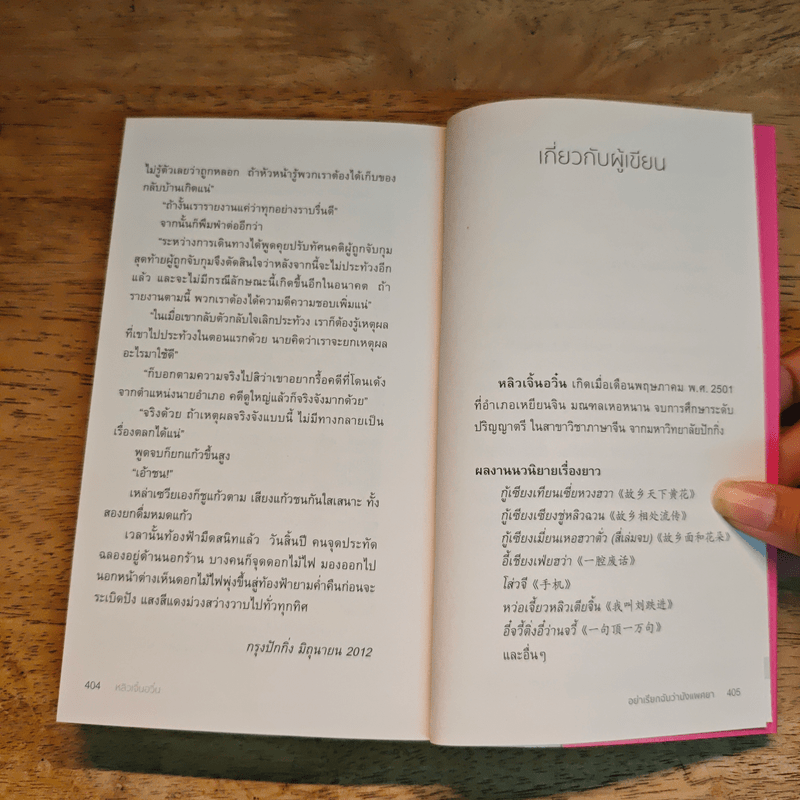 ไม่รู้ตัวเลยว่าถูกหลอก ถ้าหัวหน้ารู้พวกเราต้องได้เก็บของ
กลับบ้านเกิดแน่”
“ถ้างั้นเรารายงานแค่ว่าทุกอย่างราบรื่นดี”
จากนั้นก็พึมพำต่ออีกว่า
“ระหว่างการเดินทางได้พูดคุยปรับทัศนคติผู้ถูกจับกุม
สุดท้ายผู้ถูกจับกุมจึงตัดสินใจว่าหลังจากนี้จะไม่ประท้วงอีก
แล้ว และจะไม่มีกรณีลักษณะนี้เกิดขึ้นอีกในอนาคต ถ้า
รายงานตามนี้ พวกเราต้องได้ความดีความชอบเพิ่มแน่”
“ในเมื่อเขากลับตัวกลับใจเลิกประท้วง เราก็ต้องรู้เหตุผล
ที่เขาไปประท้วงในตอนแรกด้วย นายคิดว่าเราจะยกเหตุผล
อะไรมาใช้ดี”
“ก็บอกตามความจริงไปสิว่าเขาอยากรื้อคดีที่โดนเด้ง
จากตำแหน่งนายอำเภอ คดีดูใหญ่แล้วก็จริงจังมากด้วย”
“จริงด้วย ถ้าเหตุผลจริงจังแบบนี้ ไม่มีทางกลายเป็น
เรื่องตลกได้แน่”
พูดจบก็ยกแก้วขึ้นสูง
“เอ้าชน!”
เหล่าเซวียเองก็ชูแก้วตาม เสียงแก้วชนกันใสเสนาะ ทั้ง
สองยกดื่มหมดแก้ว
เวลานั้นท้องฟ้ามืดสนิทแล้ว วันสิ้นปี คนจุดประทัด
ฉลองอยู่ด้านนอกร้าน บางคนก็จุดดอกไม้ไฟ มองออกไป
นอกหน้าต่างเห็นดอกไม้ไฟพุ่งขึ้นสู่ท้องฟ้ายามค่ำคืนก่อนจะ
ระเบิดปัง แสงสีแดงม่วงสว่างวาบไปทั่วทุกทิศ
กรุงปักกิ่ง มิถุนายน 2012
404 หลิวเจิ้นอวิ๋น
เกี่ยวกับผู้เขียน
หลิวเจิ้นอวิ๋น เกิดเมื่อเดือนพฤษภาคม พ.ศ. 2501
ที่อำเภอเหยียนจิน มณฑลเหอหนาน จบการศึกษาระดับ
ปริญญาตรี ในสาขาวิชาภาษาจีน จากมหาวิทยาลัยปักกิ่ง
ผลงานนวนิยายเรื่องยาว
กู้เซียงเทียนเซี่ยหวงฮวา《故乡天下黄花》
กู้เซียงเซียงชู่หลิวฉวน《故乡相处流传》
กู้เซียงเมี่ยนเหอฮวาตั่ว (สี่เล่มจบ)《故乡面和花朵》
อี้เชียงเฟ่ยฮว่า《一腔废话》
โส่วจี《手机》
หว่อเจี้ยวหลิวเตียจิ้น《我叫刘跃进》
อี๋จวี้ติ่งอี๋ว่านจวี้《一句顶一万句》
และอื่นๆ
อย่าเรียกฉันว่านังแพศยา 405